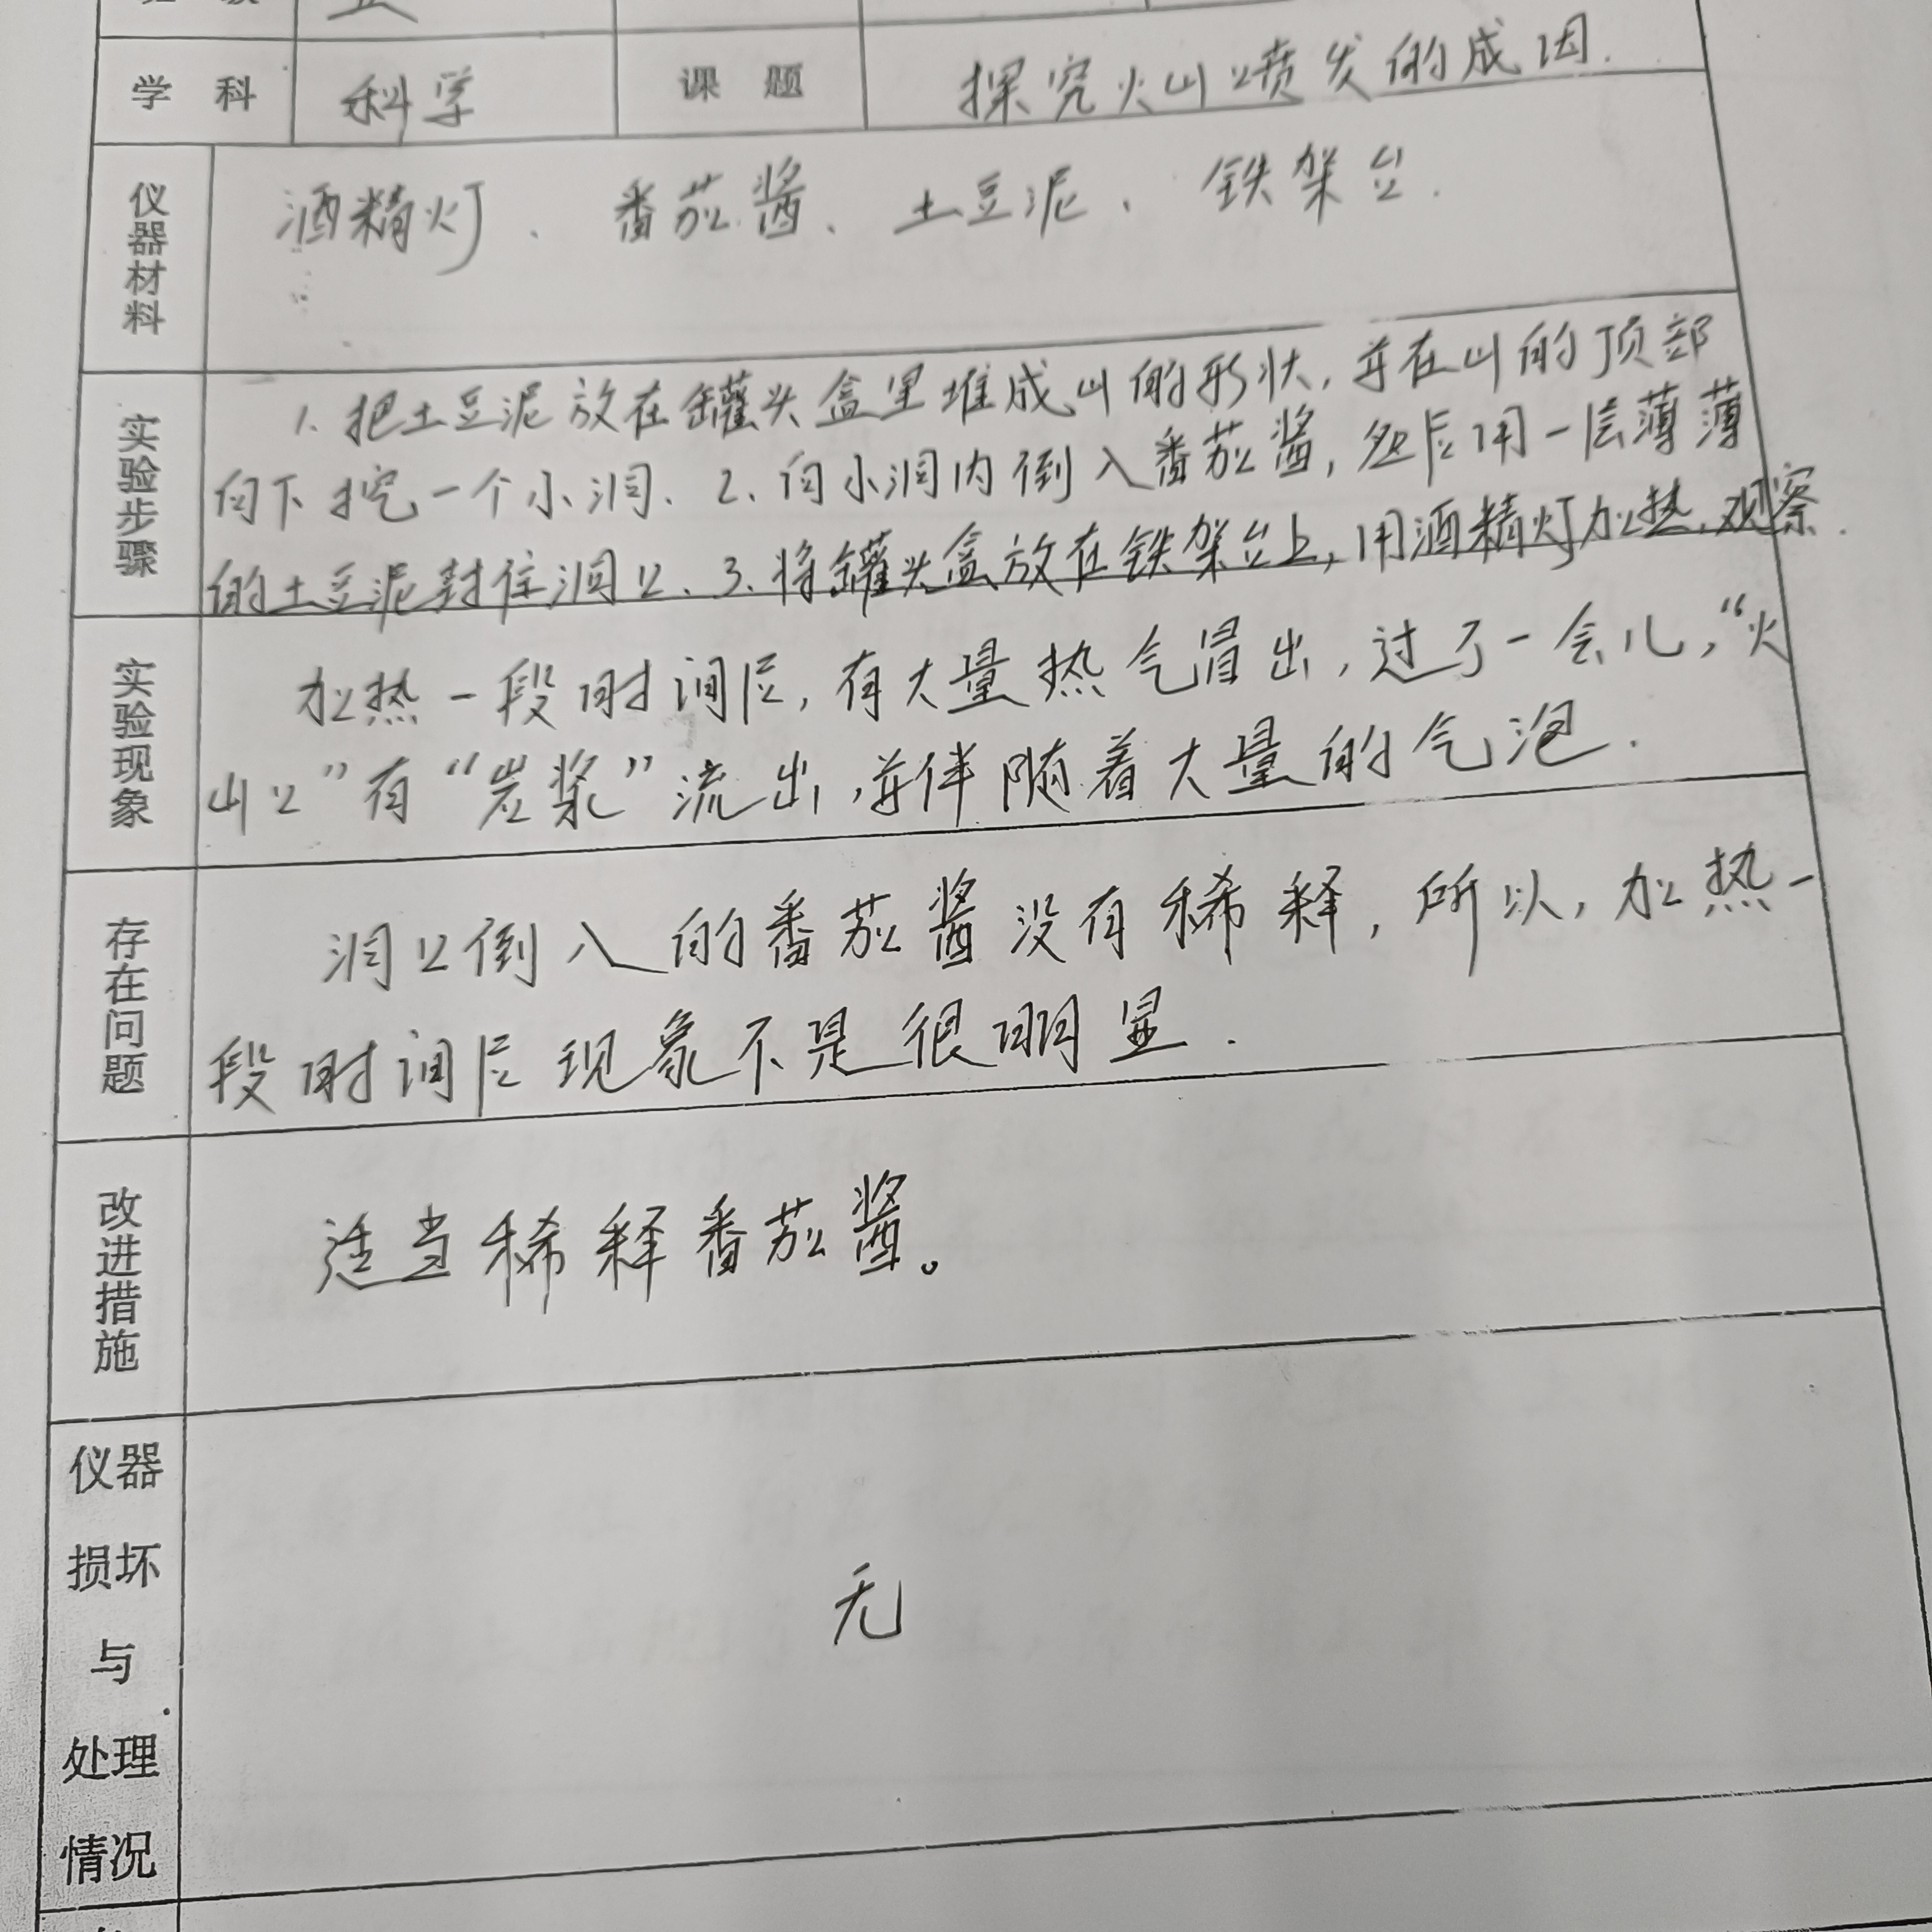 学 科 科学 课 题 探究火山喷发的成因.
仪器材料 酒精灯、番茄酱、土豆泥、铁架台.
实验步骤 1.把土豆泥放在罐头盒里堆成山的形状,并在山的顶部
向下挖一个小洞、2、向小洞内倒入番茄酱,然后用一层薄薄
的土豆泥封住洞口、3、将罐头盒放在铁架台上,用酒精灯加热,观察.
实验现象 加热一段时间后,有大量热气冒出,过了一会儿,“火
山口”有“岩浆”流出,并伴随着大量的气泡.
存在问题 洞口倒入的番茄酱没有稀释,所以,加热一
段时间后现象不是很明显.
改进措施 适当稀释番茄酱。
仪器
损坏
与
处理
情况
无